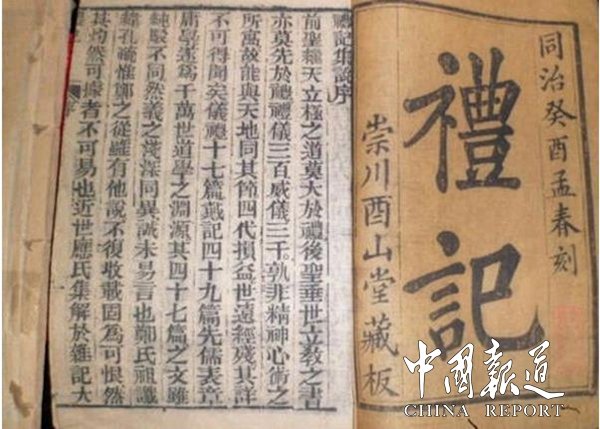 同治癸酉孟春刻
禮記
崇川酉山堂藏板
禮記集說序
前聖繼天立極之道莫大於禮後聖垂世立敎之書
亦莫先於禮禮儀三百威儀三千孰非精神心術之
所寓故能與天地同其節四代損益世遠經殘其詳
不可得聞矣儀禮十七篇戴記四十九篇先儒表章
庸學遂爲千萬世道學之淵源其四十七篇之文雖
純駁不同然義之淺深同異誠未易言也鄭氏祖讖
緯孔疏惟鄭之從雖有他說不復收載固爲可恨然
其灼然可據者不可易也近世應氏集解於雜記大
中國報道
CHINA REPORT